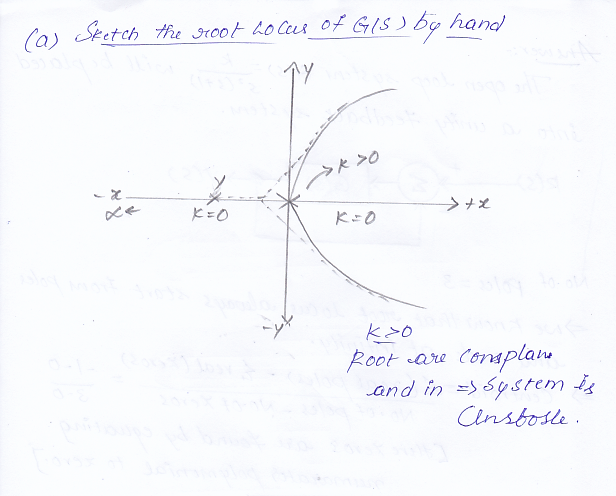 (a) Sketch the root Locus of G(s) by hand
y
K>0
y
-x
+x
α←
K=0
K=0
-y
K>0
Root are Complane
and in => System is
Unstable.